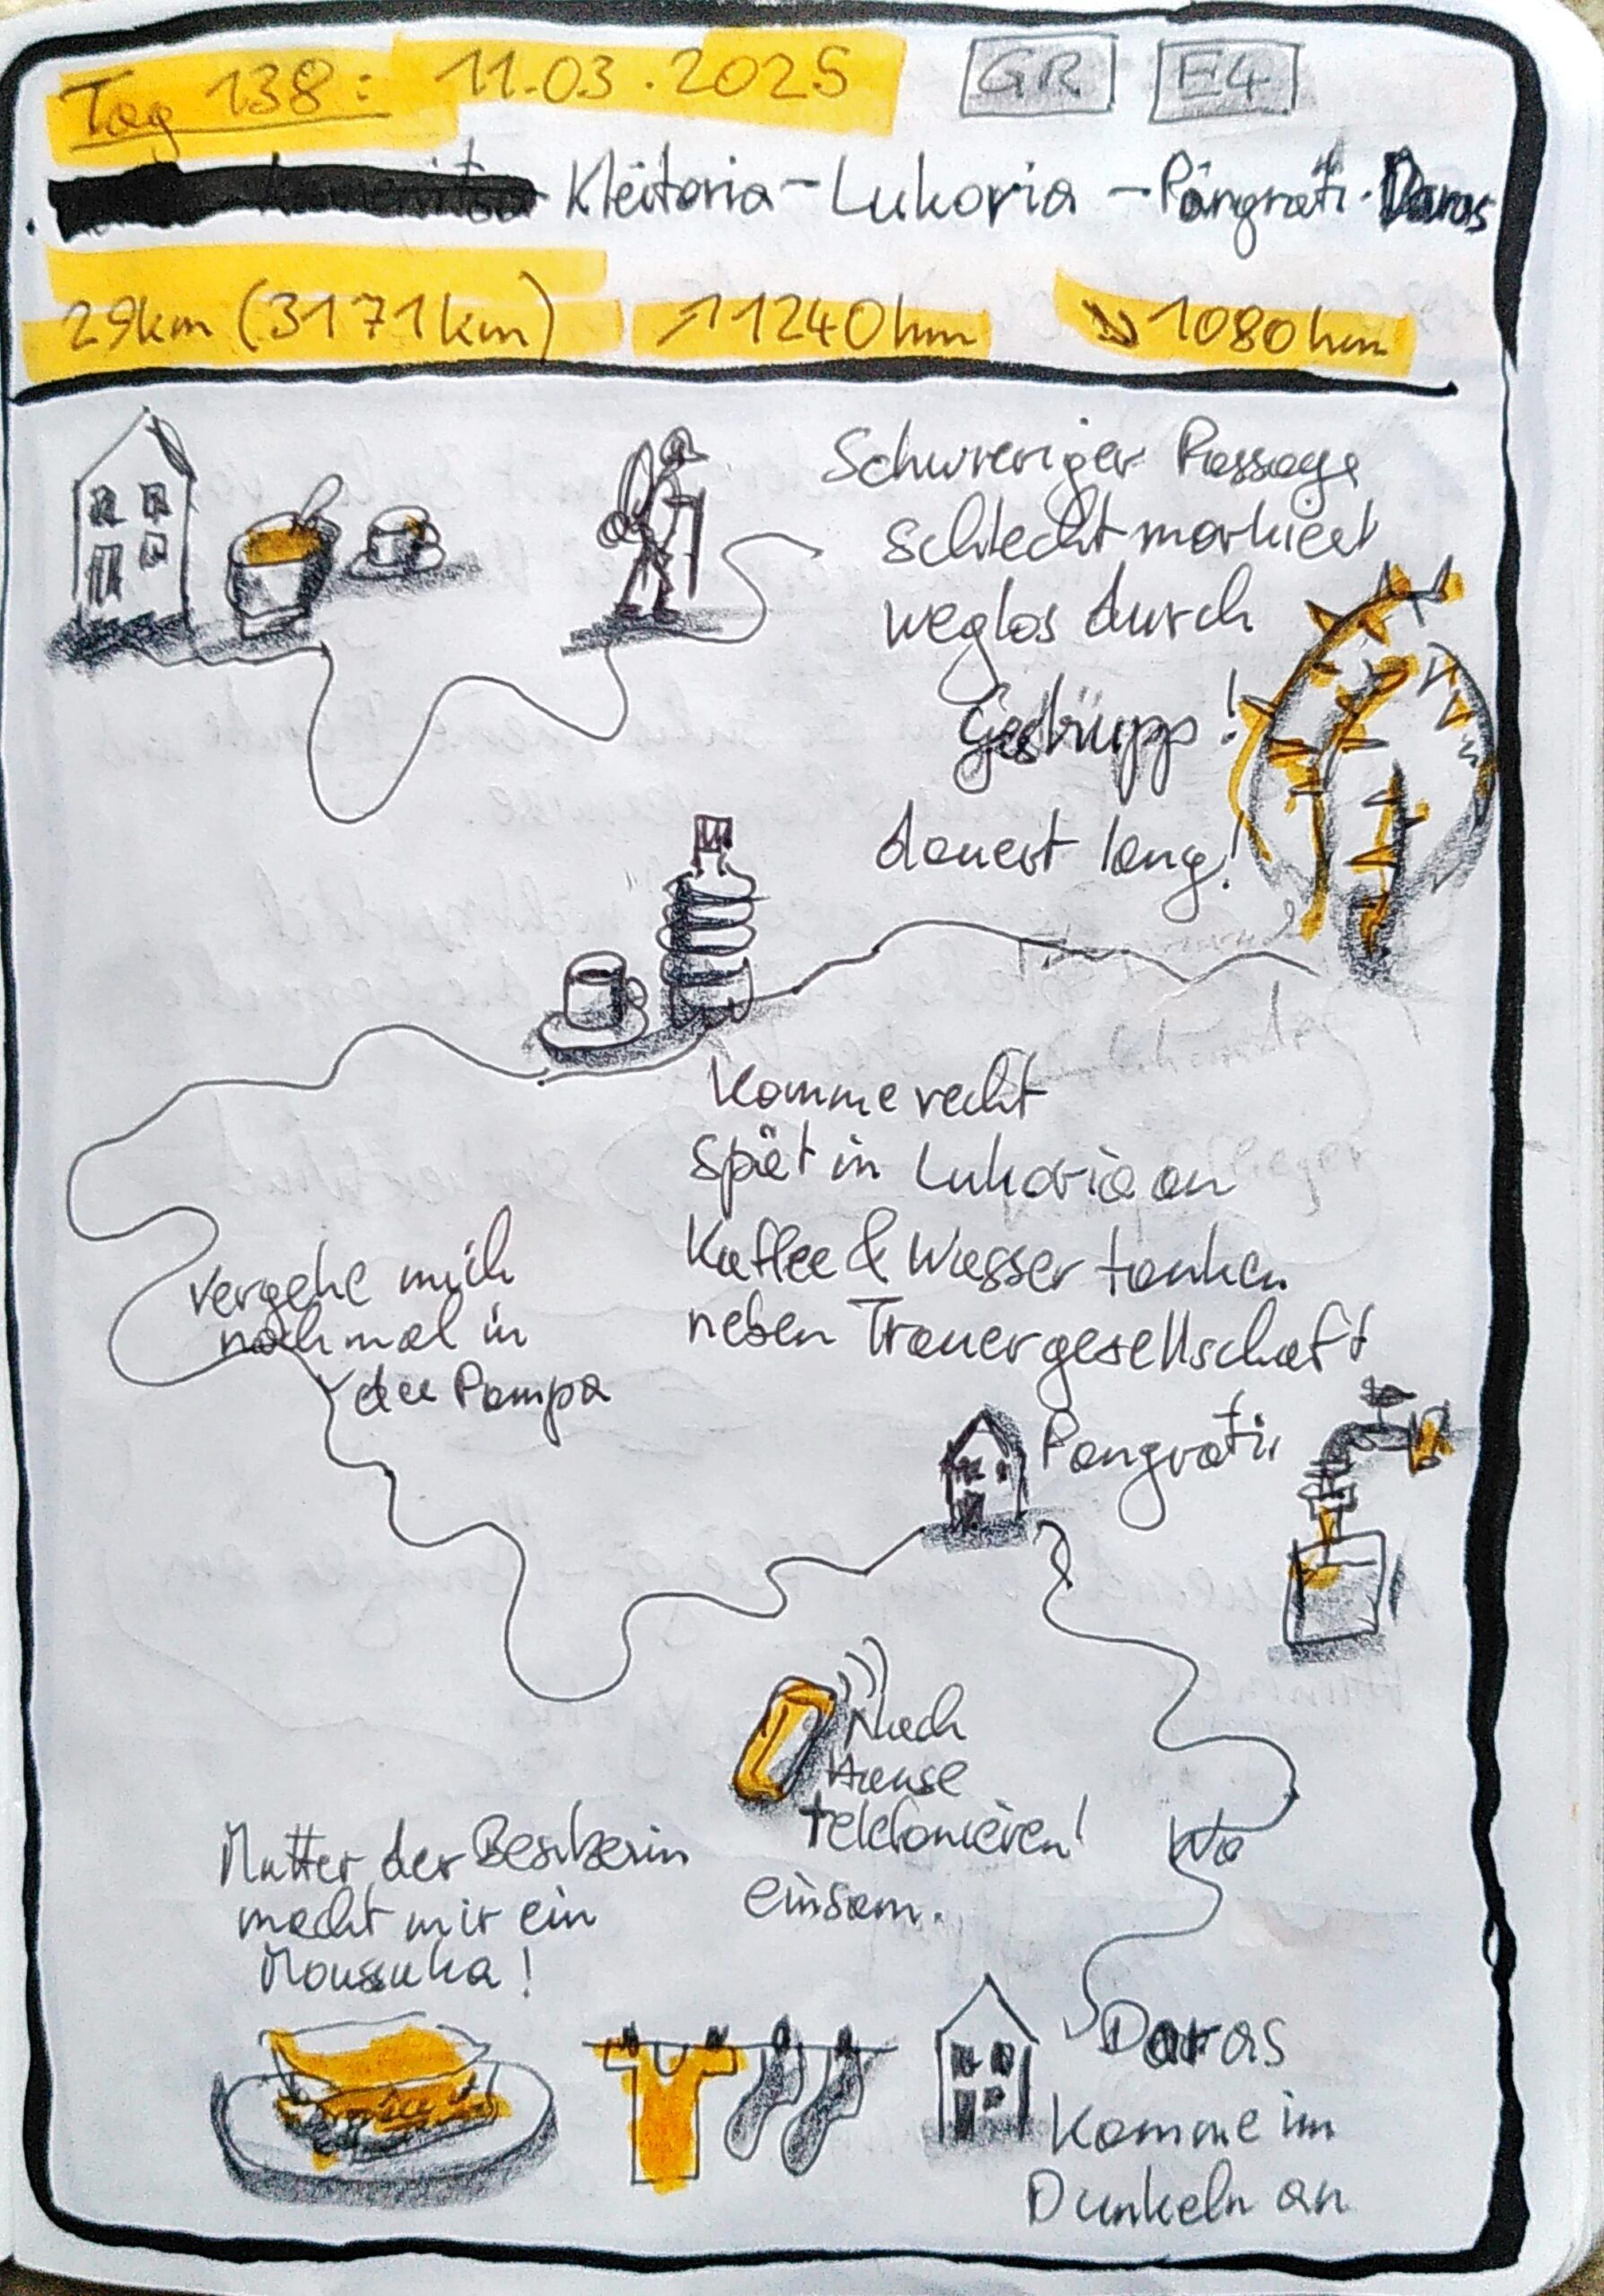 Tag 138: 11.03.2025 GR E4
Kleitoria - Lukoria - Pangrati - Daras
29km (3171km) ↗1240hm ↘1080hm
Schwieriger Passage
schlecht markiert
weglos durch
Gestrüpp!
dauert lang!
Komme recht
spät in Lukoria an
Kaffee & Wasser tanken
neben Trauergesellschaft
vergehe mich
nochmal in
der Pampa
Pangrati
Nach
Hause
telefonieren!
einsam.
Mutter der Besitzerin
macht mir ein
Moussaka!
Daras
Komme im
Dunkeln an